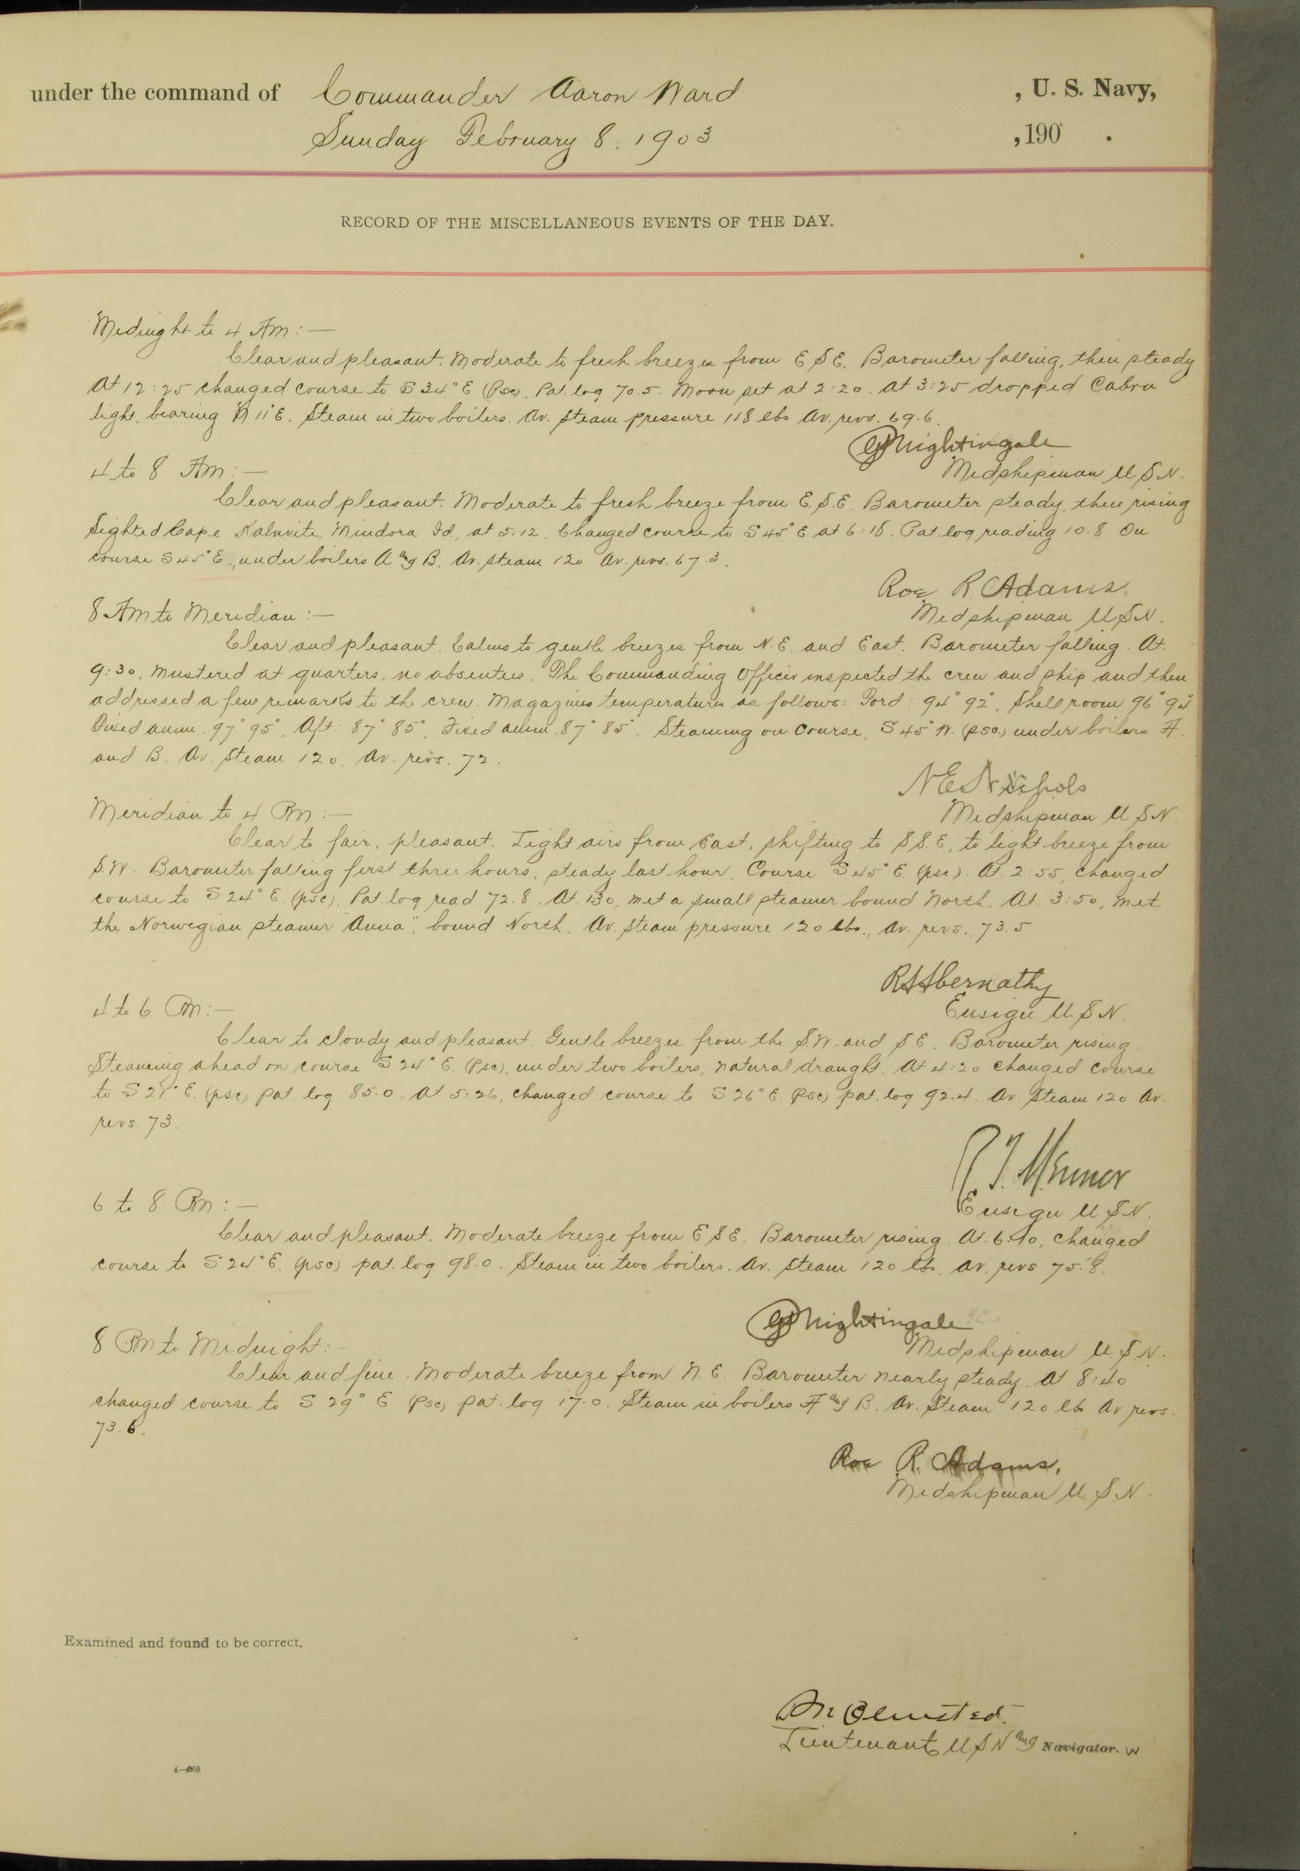 under the command of Commander Aaron Ward, U. S. Navy,
Sunday February 8, 1903, 190 .
RECORD OF THE MISCELLANEOUS EVENTS OF THE DAY.
Midnight to 4 Am:—
Clear and pleasant. Moderate to fresh breezes from E S E. Barometer falling, then steady
At 12:25 changed course to S 34° E (psc). Pat. log 70.5. Moon set at 2:20. At 3:25 dropped Cabra
light, bearing N 11° E. Steam in two boilers. Av. steam pressure 118 lbs Av. revs. 69.6.
Nightingale
4 to 8 Am:—
Midshipman U S N.
Clear and pleasant. Moderate to fresh breeze from E. S. E. Barometer steady, then rising
Sighted Cape Kalavite, Mindora Id, at 5:12. Changed course to S 45° E at 6:18. Pat. log reading 10.8. On
course S 45° E., under boilers A and B. Av. steam 120 Av. revs. 67.3.
Roe R Adams.
8 Am to Meridian:—
Midshipman U S N.
Clear and pleasant. Calms to gentle breezes from N. E. and East. Barometer falling. At
9:30, mustered at quarters, no absentees. The Commanding Officer inspected the crew and ship and then
addressed a few remarks to the crew. Magazines temperatures as follows: Ford: 94° 92°. Shell room 96° 94°
Fixed amm. 97° 95°. Aft: 87° 85°. Fixed amm. 87° 85°. Steaming on course, S 45° W. (psc) under boilers A.
and B. Av. Steam 120. Av. revs. 72.
N E Nichols
Meridian to 4 Pm:—
Midshipman U S N.
Clear to fair, pleasant. Light airs from East, shifting to S S. E., to light breeze from
S W. Barometer falling first three hours, steady last hour. Course S 45° E (psc). At 2:55, changed
course to S 24° E. (psc), Pat log read 72.8. At 1:30, met a small steamer bound North. At 3:50, met
the Norwegian steamer "Anna", bound North. Av. steam pressure 120 lbs., Av. revs. 73.5
Abernathy
4 to 6 Pm:—
Ensign U. S N.
Clear to cloudy and pleasant. Gentle breezes from the S W. and S E. Barometer rising.
Steaming ahead on course S 24° E. (psc), under two boilers, natural draught. At 4:20 changed course
to S 21° E. (psc) pat. log 85.0. At 5:26, changed course to S 26° E. (psc) pat. log 92.4. Av. Steam 120 Av.
revs. 73.
6 to 8 Pm:—
Ensign U S N.
Clear and pleasant. Moderate breeze from E S E. Barometer rising. At 6:10, changed
course to S 24° E. (psc) pat. log 98.0. Steam in two boilers. Av. steam 120 lbs, Av. revs 75.8.
Nightingale
8 Pm to Midnight:—
Midshipman U. S N.
Clear and fine. Moderate breeze from N. E. Barometer nearly steady. At 8:40
changed course to S 29° E (psc) pat. log 17.0. Steam in boilers A and B. Av. Steam 120 lbs Av revs.
73.6.
Roe R. Adams,
Midshipman U. S N.
Examined and found to be correct.
Olmsted.
Lieutenant U S N and Navigator.